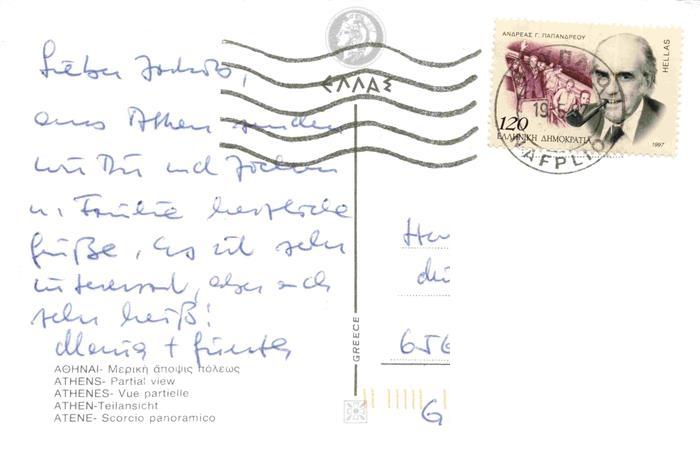 Lieber Jochen,
aus Athen senden
wir Dir und Jochen
u. Familie herzliche
Grüße, es ist sehr
interessant, aber auch
sehr heiß!
Maria + Günter
ΑΘΗΝΑΙ- Μερική ἄποψις πόλεως
ATHENS- Partial view
ATHENES- Vue partielle
ATHEN-Teilansicht
ATENE- Scorcio panoramico
ΕΛΛΑΣ
GREECE
ΑΝΔΡΕΑΣ Γ. ΠΑΠΑΝΔΡΕΟΥ
HELLAS
120
ΕΛΛΗΝΙΚΗ ΔΗΜΟΚΡΑΤΙΑ
1997
NAFPLIO
656
G